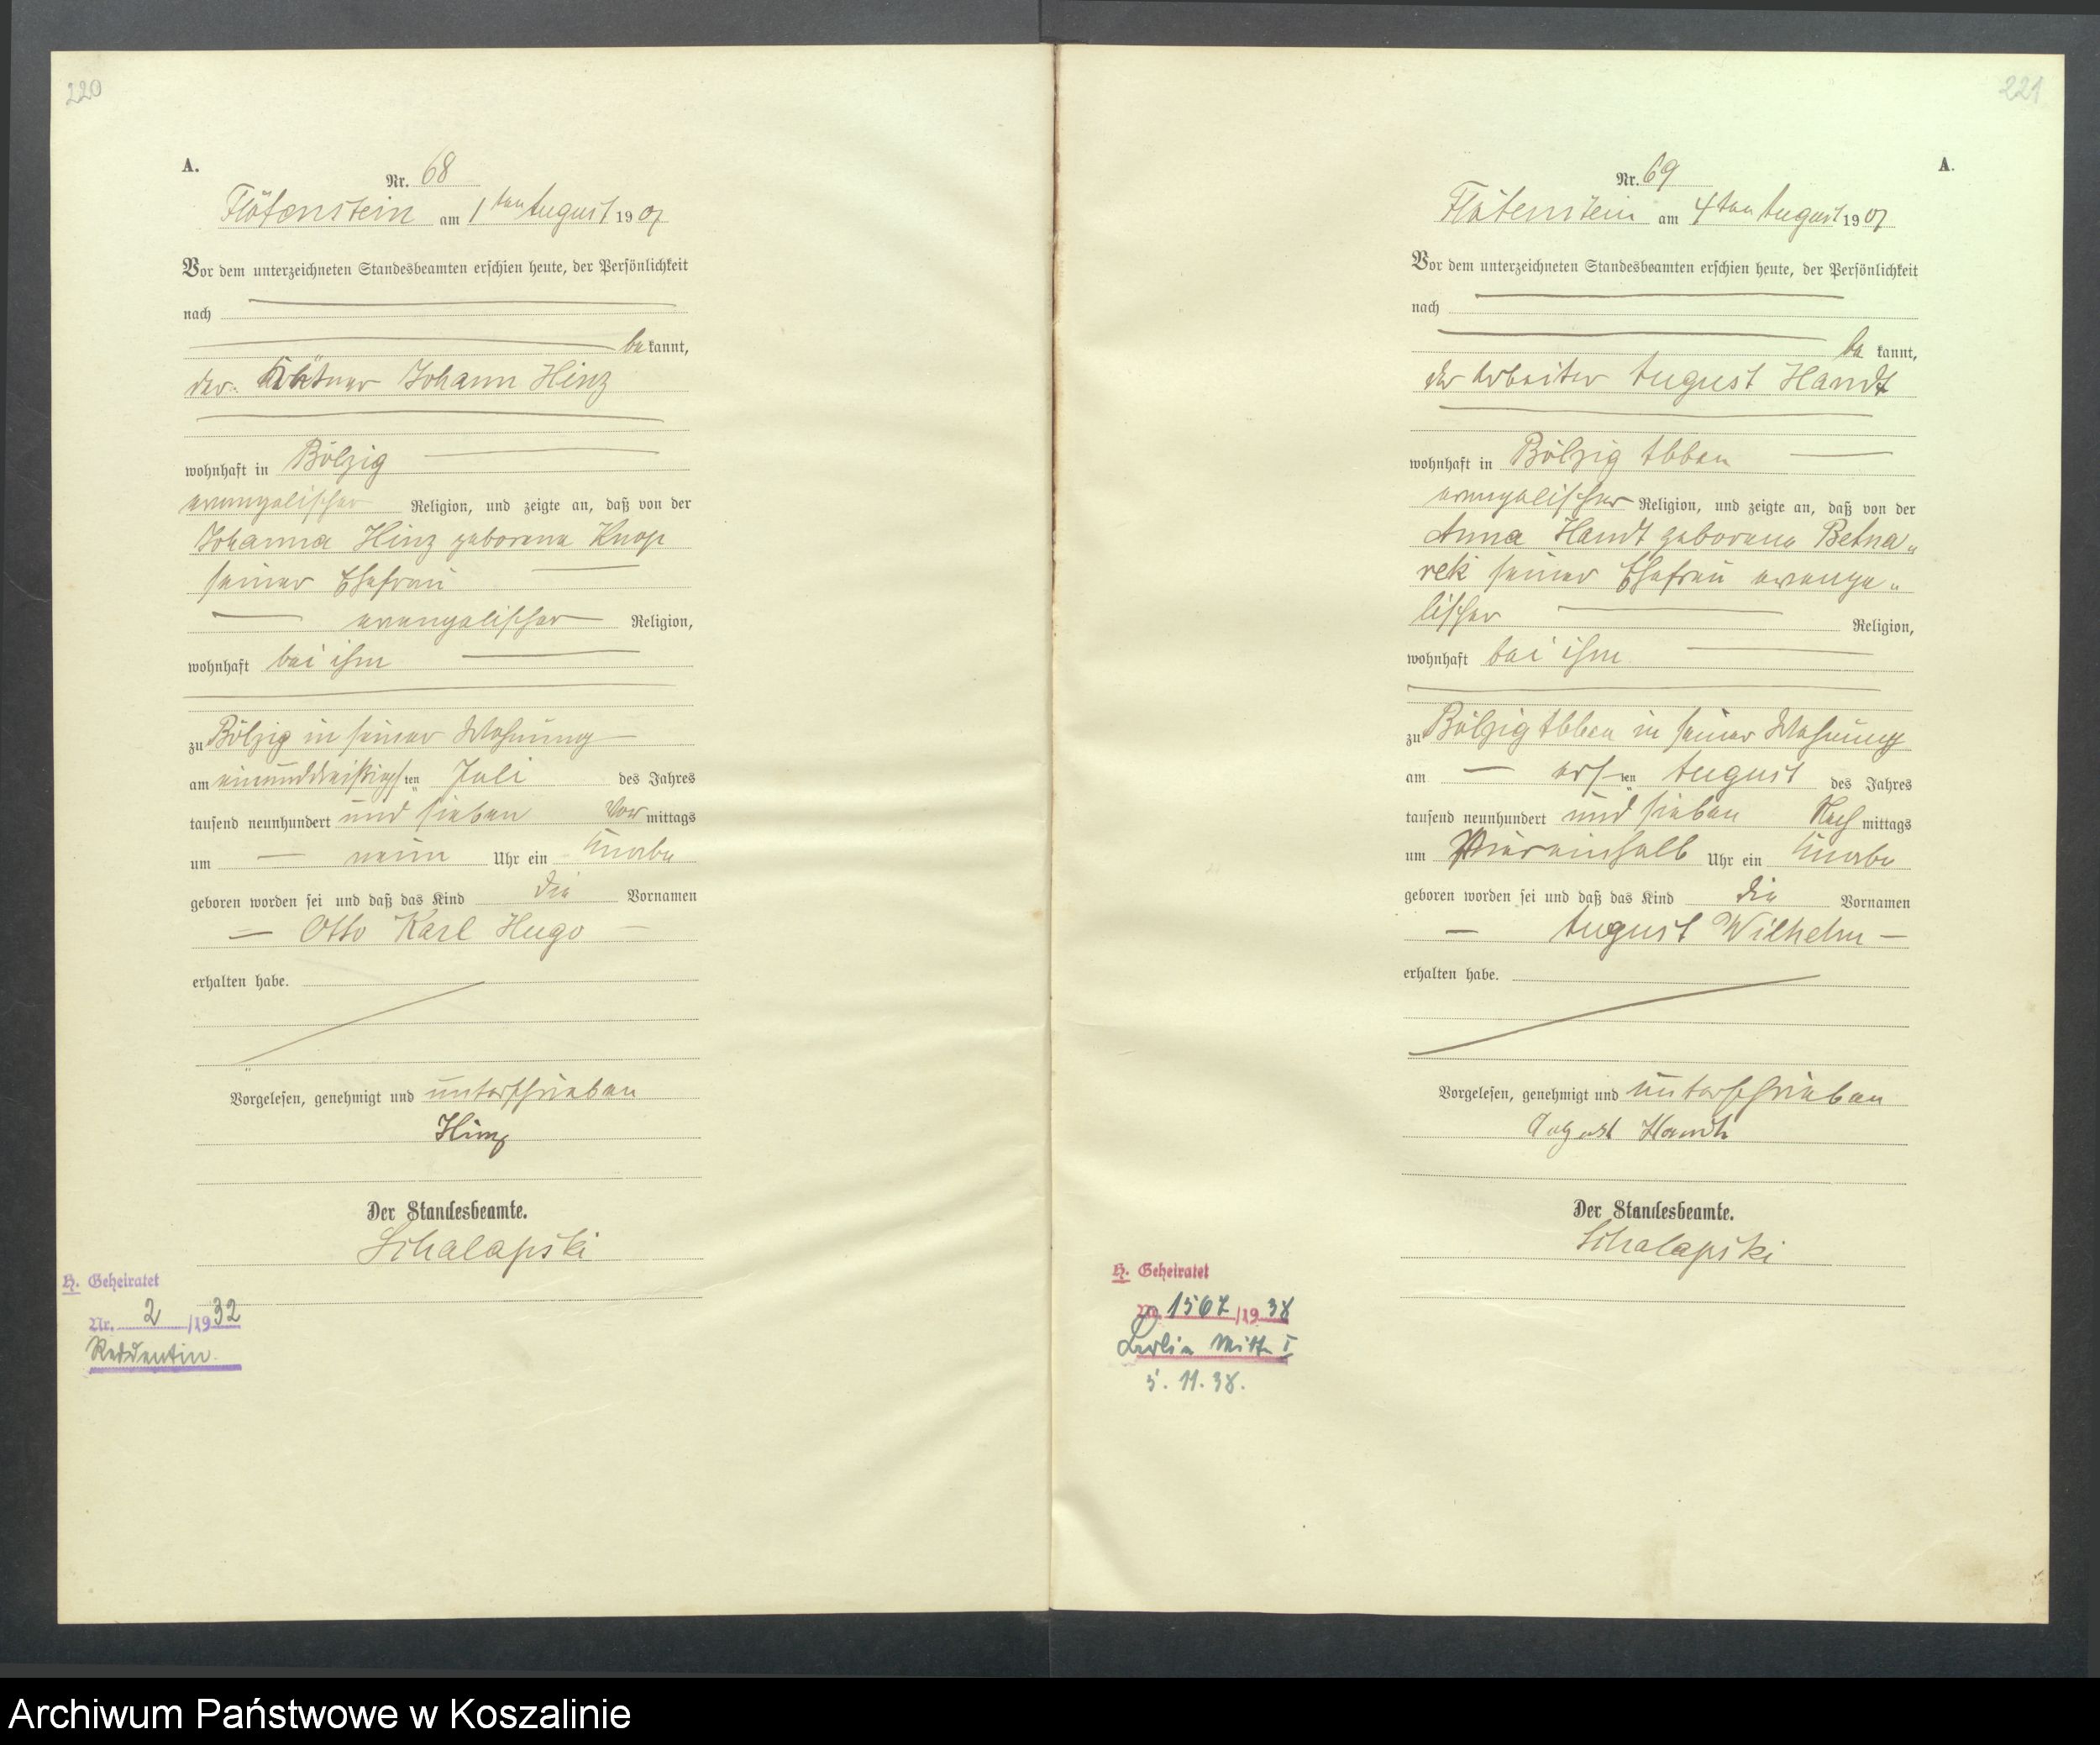 220
A.
Nr. 68
Flötenstein am 1ten August 1907
Vor dem unterzeichneten Standesbeamten erschien heute, der Persönlichkeit
nach
be kannt,
der Kätner Johann Hinz
wohnhaft in Bölzig
evangelischer Religion, und zeigte an, daß von der
Johanna Hinz geborene Knop
seiner Ehefrau
evangelischer Religion,
wohnhaft bei ihm
zu Bölzig in seiner Wohnung
am einunddreißigsten Juli des Jahres
tausend neunhundert und sieben Vor mittags
um neun Uhr ein Knabe
geboren worden sei und daß das Kind die Vornamen
Otto Karl Hugo
erhalten habe.
Vorgelesen, genehmigt und unterschrieben
Hinz
Der Standesbeamte.
Schalapski
H. Geheiratet
Nr. 2 /1932
Reddentin
221
A.
Nr. 69
Flötenstein am 4ten August 1907
Vor dem unterzeichneten Standesbeamten erschien heute, der Persönlichkeit
nach
be kannt,
der Arbeiter August Handt
wohnhaft in Bölzig Abbau
evangelischer Religion, und zeigte an, daß von der
Anna Handt geborene Betna„
rek seiner Ehefrau evange„
lischer Religion,
wohnhaft bei ihm
zu Bölzig Abbau in seiner Wohnung
am ersten August des Jahres
tausend neunhundert und sieben Nach mittags
um Viereinhalb Uhr ein Knabe
geboren worden sei und daß das Kind die Vornamen
August Wilhelm
erhalten habe.
Vorgelesen, genehmigt und unterschrieben
August Handt
Der Standesbeamte.
Schalapski
H. Geheiratet
Nr. 1567 /1938
Berlin Mitte I
5. 11. 38.
Archiwum Państwowe w Koszalinie